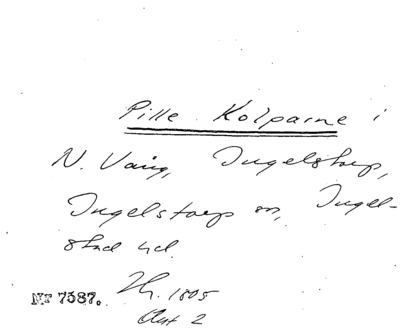 Pille Kolparne i
N. Vang, Ingelstorp,
Ingelstorps sn, Ingel-
stad hd.
Nr 7387. 1805
Ant 2